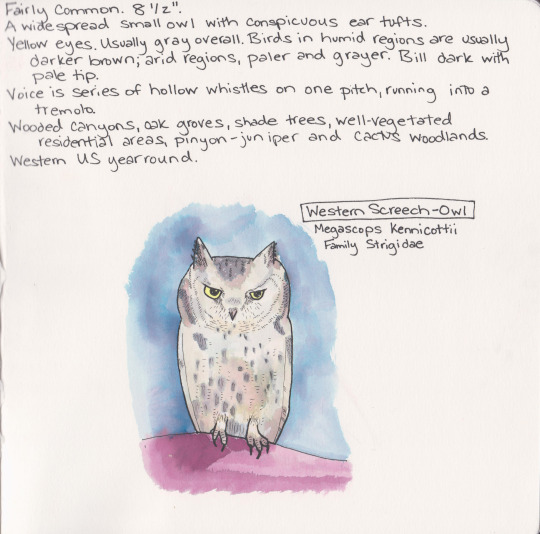 Fairly Common. 8 1/2".
A widespread small owl with conspicuous ear tufts.
Yellow eyes. Usually gray overall. Birds in humid regions are usually
darker brown; arid regions, paler and grayer. Bill dark with
pale tip.
Voice is series of hollow whistles on one pitch, running into a
tremolo.
Wooded canyons, oak groves, shade trees, well-vegetated
residential areas, pinyon-juniper and cactus woodlands.
Western US year round.
Western Screech-Owl
Megascops Kennicottii
Family Strigidae